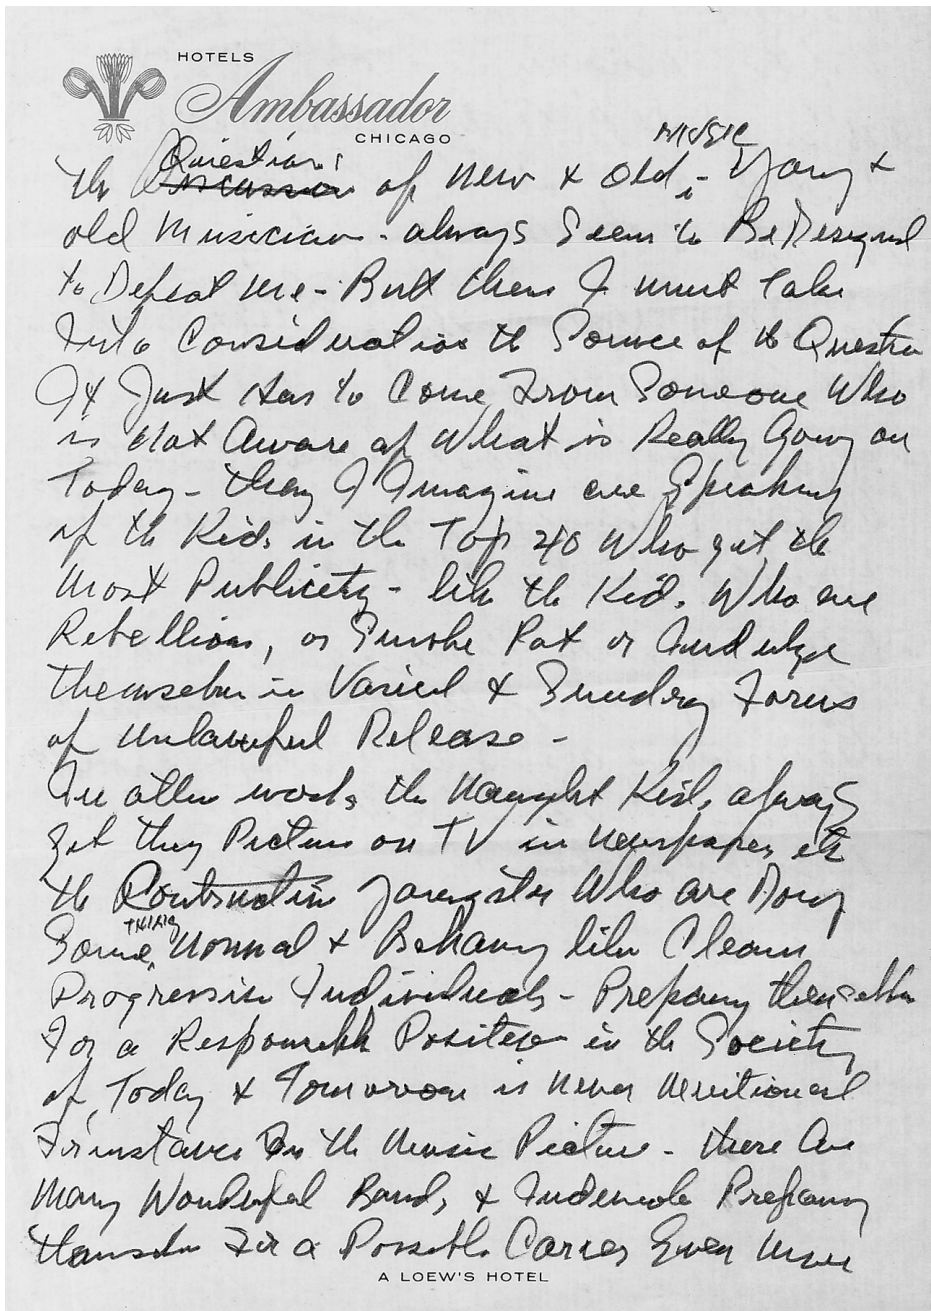 HOTELS
Ambassador
CHICAGO
MUSIC
Question
The of New & Old - Young &
old Musician - always Seem to Be Designed
to Defeat me - But then I must Take
Into Consideration the Source of the Question
It Just Has to Come From Someone Who
is Not Aware of What is Really Going on
Today - they I Imagine are Speaking
of the Kids in the Top 40 Who get the
Most Publicity - like the Kids Who are
Rebellious, or Smoke Pot or Indulge
themselves in Varied & Sundry Forms
of Unlawful Release -
In other words the Naught Kids always
get they Picture on TV in Newspapers etc
the Youngsters Who are Doing
THING
Some Normal & Behaving like Clean
Progressive Individuals - Preparing themselves
For a Responsible Position in the Society
of Today & Tomorrow is never Mentioned
For instance In the Music Picture - there are
Many Wonderful Bands & Preparing
themselves For a Possible Career Given More
A LOEW'S HOTEL